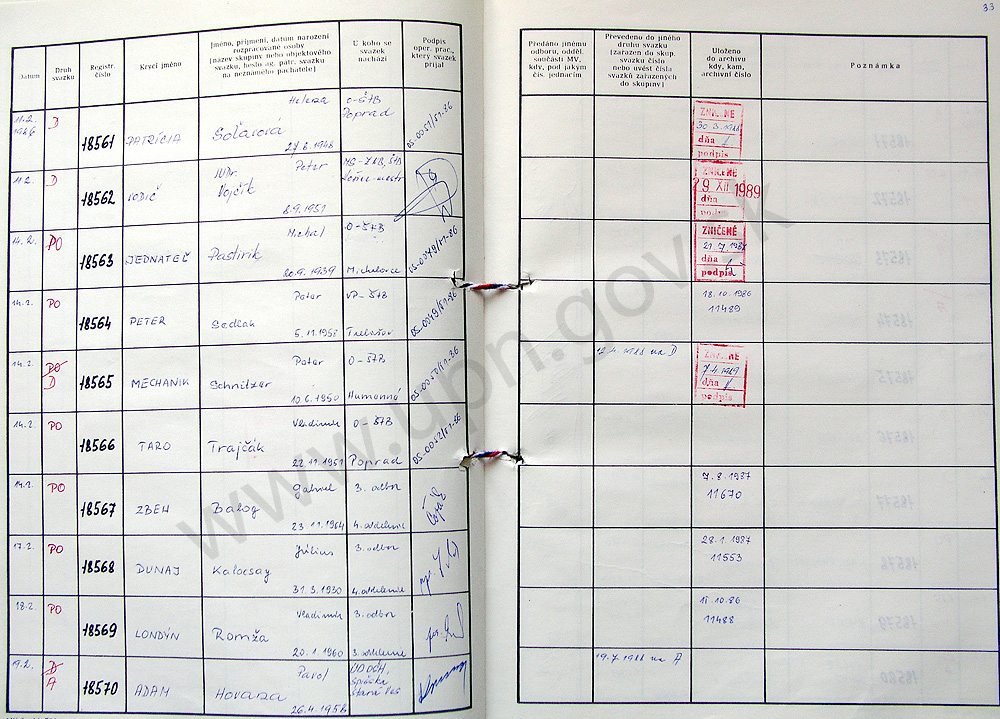 33
Datum
Druh
svazku
Registr.
číslo
Krycí jméno
Jméno, příjmení, datum narození
rozpracované osoby
(název skupiny nebo objektového
svazku, heslo ag. pátr. svazku
na neznámého pachatele)
U koho se
svazek
nachází
Podpis
oper. prac.,
který svazek
přijal
Předáno jinému
odboru, odděl.
součásti MV,
kdy, pod jakým
čís. jednacím
Převedeno do jiného
druhu svazku
(zařazen do skup.
svazku číslo
nebo uvést čísla
svazků zařazených
do skupiny)
Uloženo
do archivu
kdy, kam,
archivní číslo
Poznámka
11.2.
1986
D
18561
PATRÍCIA
Helena
27.6.1948
O-ŠTB
Poprad
OS-0051/S1-86
ZNIČENÉ
30.3.1988
dňa
podpis
11.2.
D
18562
VODIČ
JUDr. Peter
Vojčík
8.9.1951
ZNIČENÉ
29 XII 1989
dňa
podpis
14.2.
PO
18563
JEDNATEĽ
Michal
Pastirik
20.9.1939
O-ŠTB
Michalovce
OS-0049/S1-86
ZNIČENÉ
21.7.1987
dňa
podpis
14.2.
PO
18564
PETER
Peter
Sedlak
5.11.1958
VP-ŠTB
Trebišov
OS-0049/S1-86
18.10.1986
11489
14.2.
PO
D
18565
MECHANIK
Peter
Schnitzer
10.6.1950
O-ŠTB
Humenné
12.4.1988 na D
ZNIČENÉ
dňa
podpis
14.2.
PO
18566
TARO
Vladimír
Trajčák
22.11.1951
O-ŠTB
Poprad
OS-0052/S1-86
14.2.
PO
18567
ZBEH
Gabriel
Balog
23.11.1964
3. odbor
4. oddelenie
7.8.1987
11670
17.2.
PO
18568
DUNAJ
Július
Kalocsay
31.3.1930
3. odbor
4. oddelenie
28.1.1987
11553
18.2.
PO
18569
LONDÝN
Vladimír
Romža
20.1.1960
3. odbor
3. oddelenie
11488
19.2.
D
A
18570
ADAM
Pavol
26.4.1958
19.7.1988 na A
www.upn.gov.sk